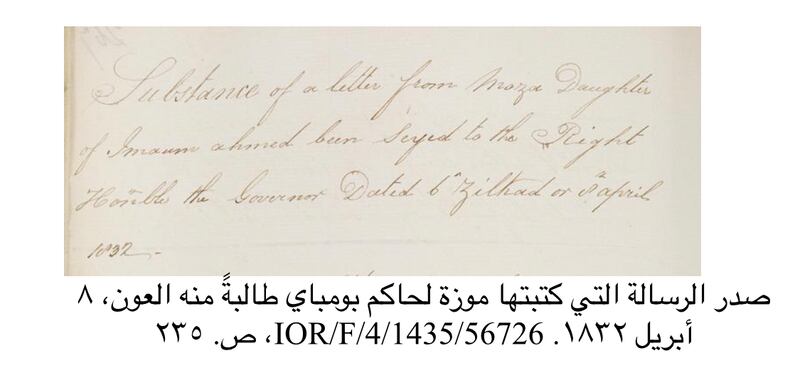 Substance of a letter from Moza Daughter
of Imaum ahmed been Seyed to the Right
Honble the Governor Dated 6th Zilkad or 8th april
1832 –
صدر الرسالة التي كتبتها موزة لحاكم بومباي طالبةً منه العون، ٨
أبريل ١٨٣٢. IOR/F/4/1435/56726، ص. ٢٣٥